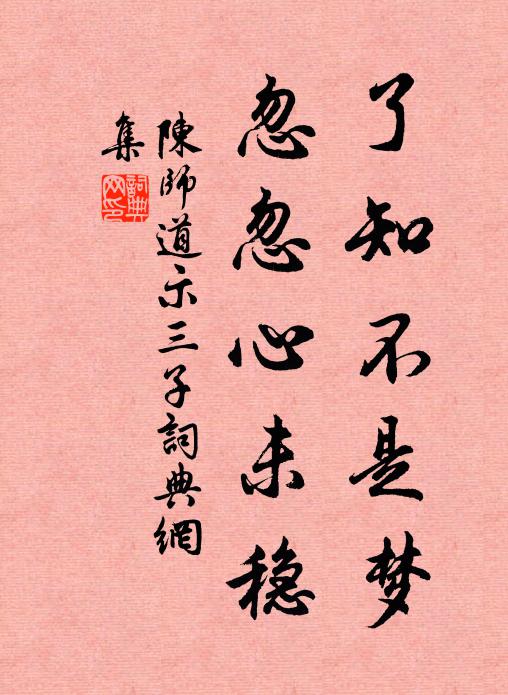 了知不是梦
忽忽心未稳
陳師道示三子詞典網
集
詞典
网印